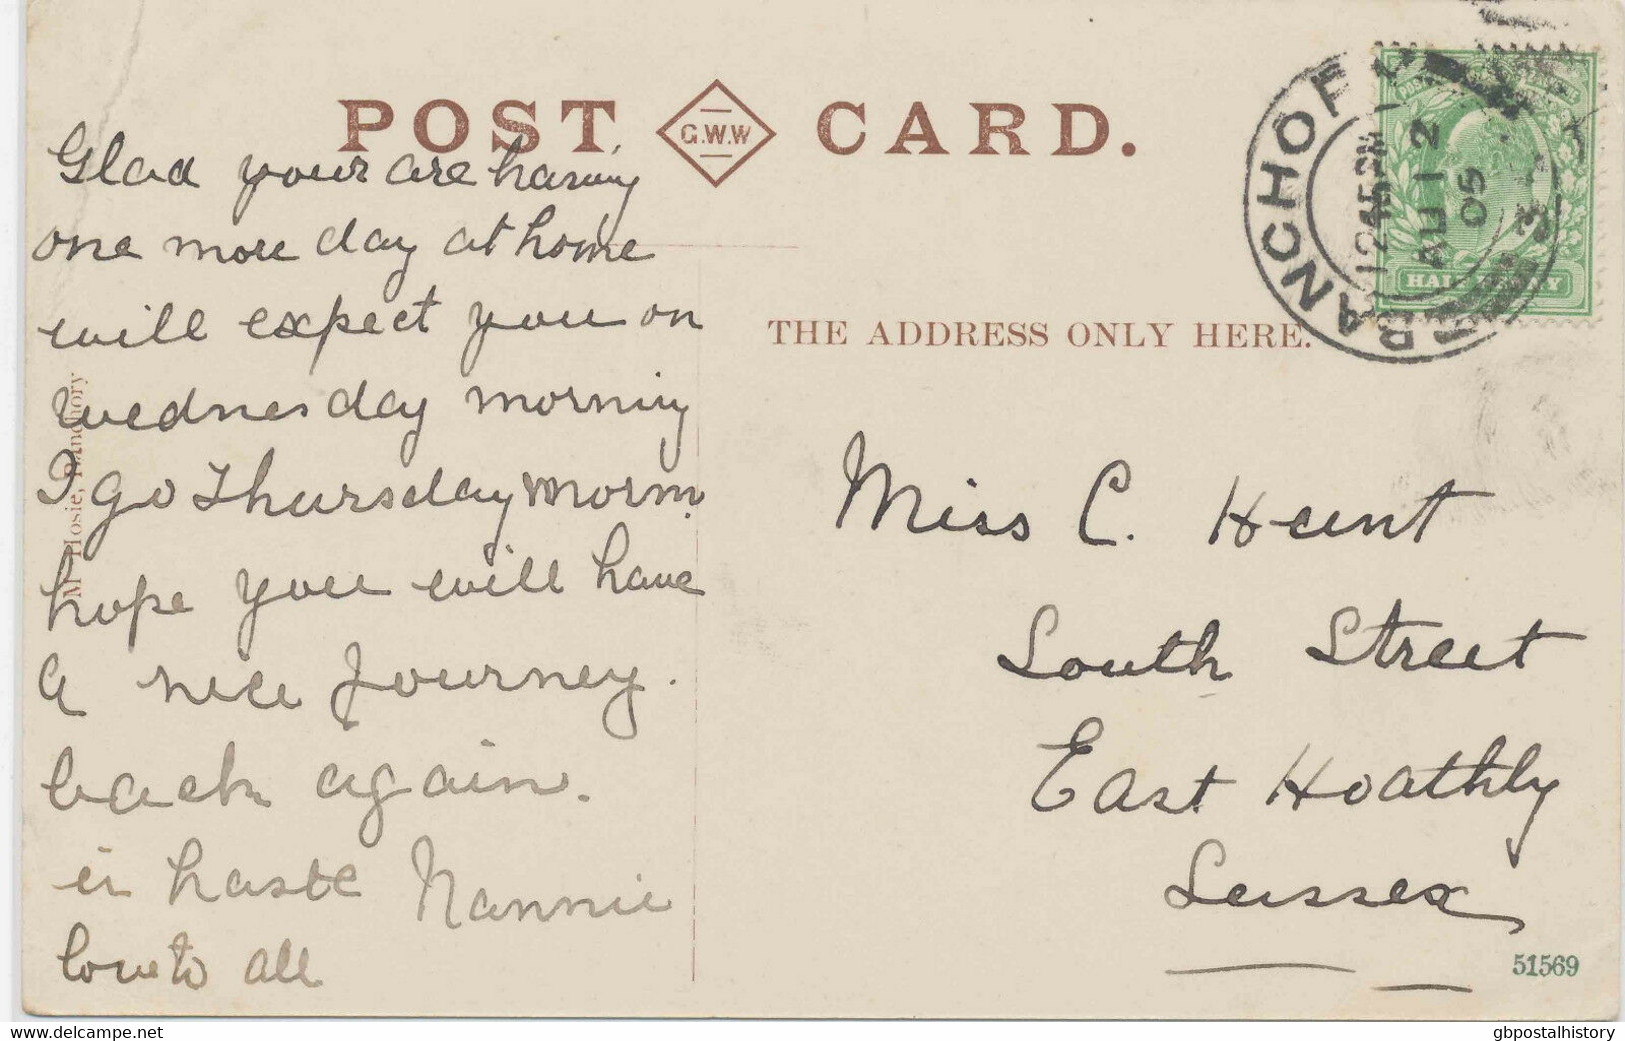 POST G.W.W CARD.
THE ADDRESS ONLY HERE.
Glad your are having
one more day at home
will expect you on
wednesday morning
I go Thursday morn.
hope you will have
a nice Journey.
back again.
in haste Nannie
love to all
Hosie, Banchory
Miss C. Hunt
South Street
East Hoathly
Sussex
51569
BANCHO
1245PM
AU 12
05
HALF PENNY
www.delcampe.net
gbpostalhistory